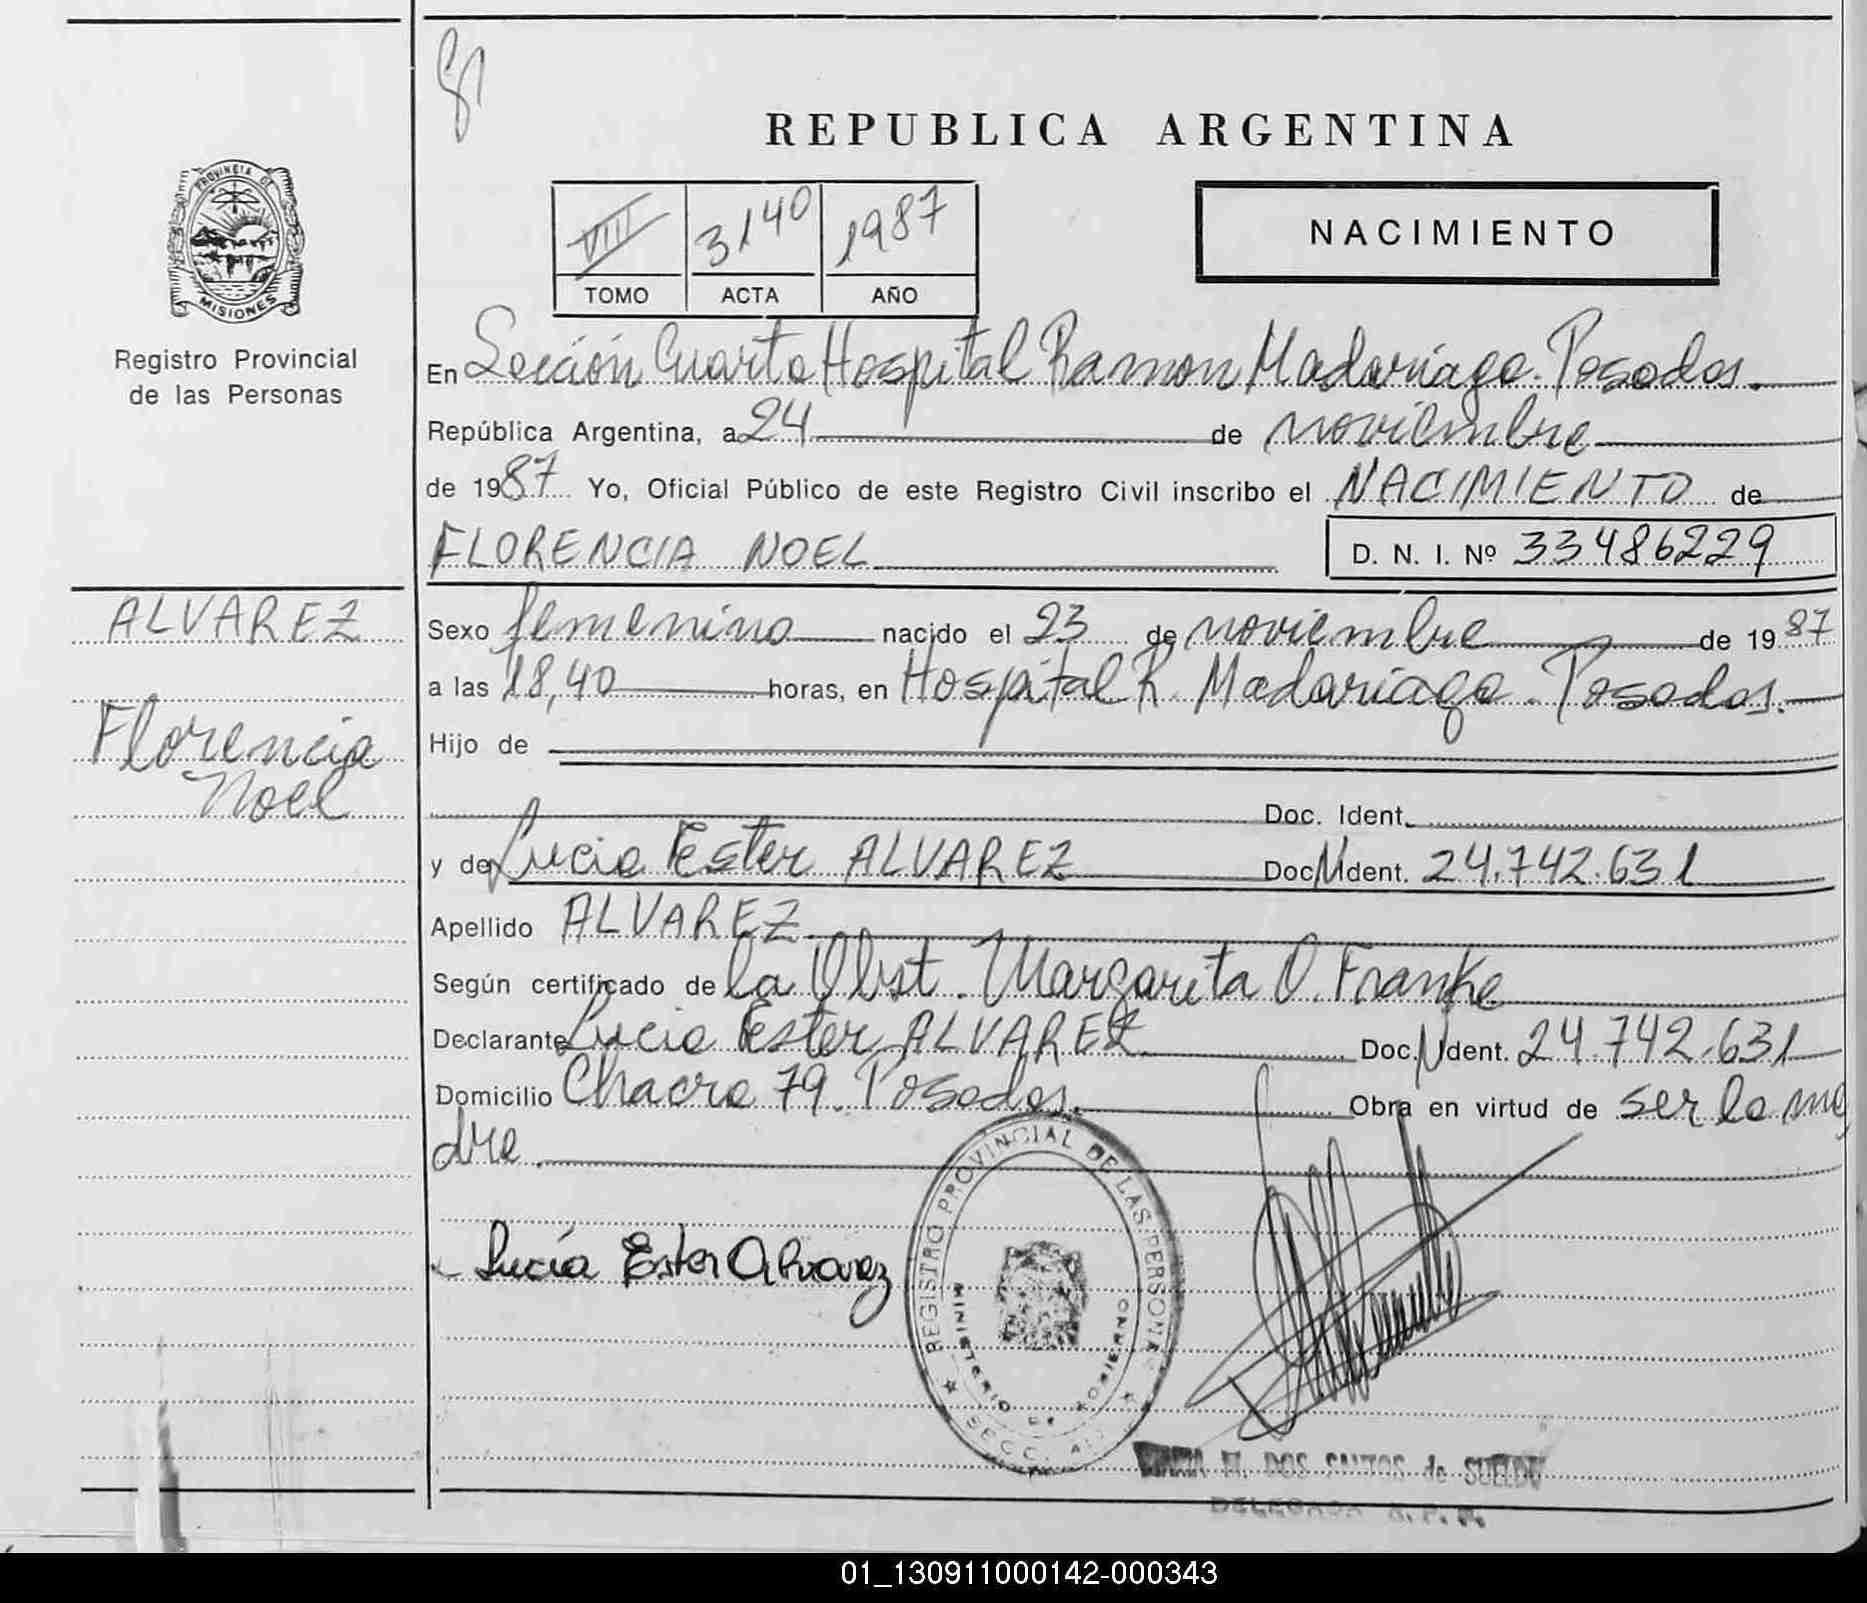 REPUBLICA ARGENTINA
PROVINCIA DE
MISIONES
Registro Provincial
de las Personas
VIII 3140 1987
TOMO ACTA AÑO
NACIMIENTO
En Sección Cuarta Hospital Ramon Madariaga. Posadas.
República Argentina, a 24 de noviembre
de 1987 Yo, Oficial Público de este Registro Civil inscribo el NACIMIENTO de
FLORENCIA NOEL D. N. I. Nº 33486229
ALVAREZ
Florencia
Noel
Sexo femenino nacido el 23 de noviembre de 1987
a las 18,40 horas, en Hospital R. Madariaga. Posadas.
Hijo de
Doc. Ident.
y de Lucia Ester ALVAREZ Doc. Ident. 24.742.631
Apellido ALVAREZ
Según certificado de la Obst. Margarita O. Franke
Declarante Lucia Ester ALVAREZ Doc. Ident. 24.742.631
Domicilio Chacra 79. Posadas. Obra en virtud de ser la ma
dre.
Lucía Ester Alvarez
REGISTRO PROVINCIAL DE LAS PERSONAS
MINISTERIO DE GOBIERNO
SECC.
M. DOS SANTOS de SUELDO
DELEGADA R. P. P.
01_130911000142-000343